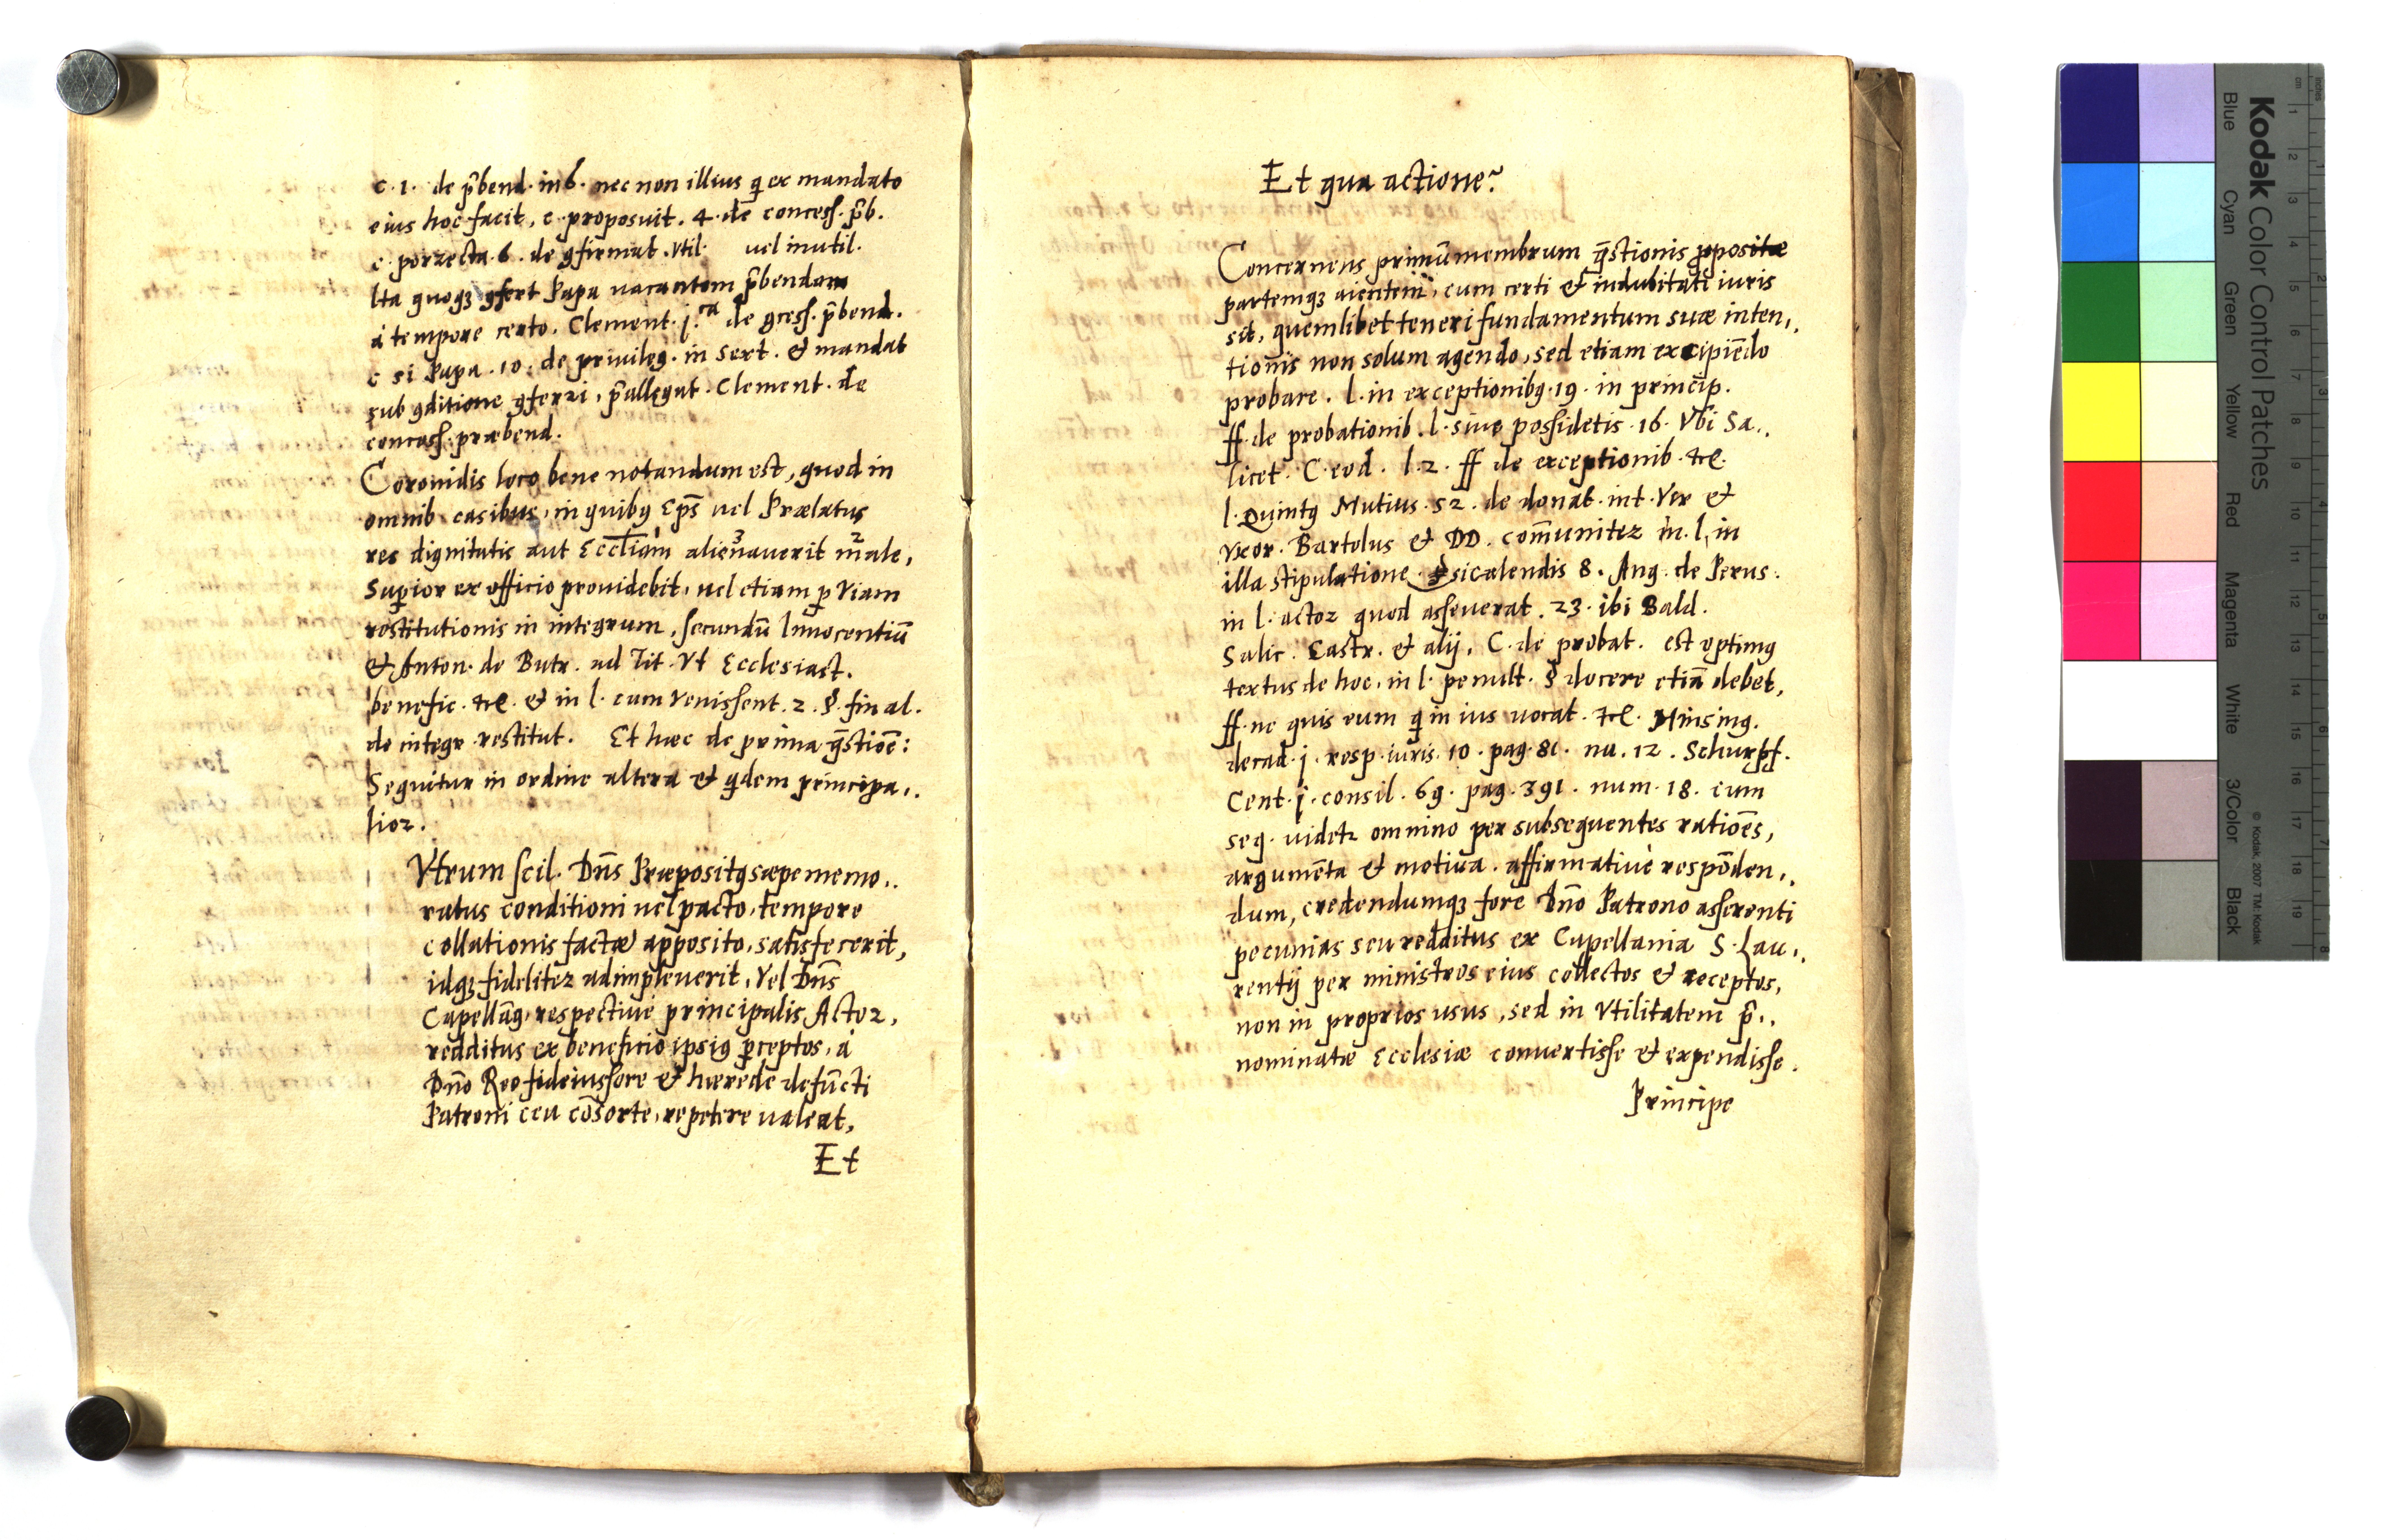 c. 1. de p̄bend. in 6. nec non illius q̨ ex mandato
eius hoc facit, c. proposuit. 4. de concess. p̄b.
c. porrecta. 6. de ꝯfirmat. vtil. vel inutil.
Ita quoqꝫ ꝯfert Papa vacantem p̄bendam
à tempore certo. Clement. j.ca de ꝯcess. p̄bend.
c si Papa. 10. de privileg. in Sext. & mandat
sub ꝯditione ꝯferri, p̄allegat. Clement. de
concess. præbend.
Coronidis loco bene notandum est, quod in
omnib. casibus, in quibꝰ Ep̄s vel Prælatus
res dignitatis aut Eccl̄iam alienaverit male,
3 2
Suꝑior ex officio providebit, vel etiam ꝑ viam
restitutionis in integrum, secundū Innocentiū
& Anton. de Butr. ad Tit. Vt Ecclesiast.
benefic. &c. & in l. cum venissent. 2. §. final.
de integr. restitut. Et hæc de prima q̄stiōe:
Sequitur in ordine altera & q̨dem principa,,
lior.
Vtrum scil. Dn̄s Præpositꝰ sæpememo,,
ratus conditioni vel pacto, tempore
collationis factæ apposito, satisfecerit,
idqꝫ fideliter adimpleverit, Vel Dn̄s
Capellānꝰ, respectivè principalis Actor,
redditus ex beneficio ipsiꝰ ꝑceptos, à
Dn̄o Reo fideiussore & hærede defūncti
Patroni ceu cōsorte, repetere valeat,
Et
Et qua actione?
Concernens primū membrum q̄stionis ꝓpositæ
partemqꝫ aientem, cum certi & indubitati iuris
sit, quemlibet teneri fundamentum suæ inten,,
tionis non solum agendo, sed etiam excipiēdo
probare. l. in exceptionibꝰ. 19. in princip.
ff. de probationib. l. sive possidetis. 16. Vbi Sa,,
licet. C. eod. l. 2. ff de exceptionib. &c.
l. Quintꝰ Mutius. 52. de donat. int. Vir &
Vxor. Bartolus & DD. com̄uniter in. l. in
illa stipulatione. si calendis 8. Ang. de Perus.
in l. actor quod asseverat. 23. ibi Bald.
Salic. Castr. & alij, C. de probat. est optimꝰ
textus de hoc, in l. penult. § docere etiā debet,
ff. ne quis eum q̨ in ius vocat. &c. Minsing.
decad. j. resp. iuris. 10. pag. 81. nu. 12. Schurpf.
Cent. j. consil. 69. pag. 391. num. 18. cum
seq. videtr omnino per subsequentes ratiōes,
argumēta & motiva. affirmativè respōden,,
dum, credendumqꝫ fore Dn̄o Patrono asserenti
pecunias seu redditus ex Capellania S. Lau,,
rentij per ministros eius collectos & receptos,
non in proprios usus, sed in Vtilitatem p̄,,
nominatæ Ecclesiæ convertisse & expendisse.
Principe
Kodak Color Control Patches
Blue Cyan Green Yellow Red Magenta White 3/Color Black
© Kodak, 2007 TM: Kodak